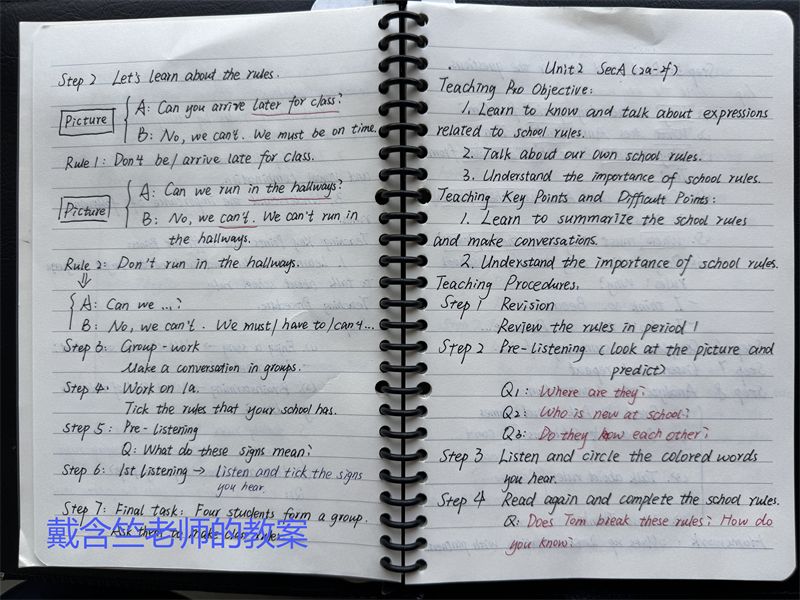 Step 2 Let's learn about the rules.
Picture
A: Can you arrive later for class?
B: No, we can't. We must be on time.
Rule 1: Don't be/arrive late for class.
Picture
A: Can we run in the hallways?
B: No, we can't. We can't run in
the hallways.
Rule 2: Don't run in the hallways.
⇓
A: Can we ...?
B: No, we can't. We must/have to/can't...
Step 3: Group-work
Make a conversation in groups.
Step 4: Work on 1a.
Tick the rules that your school has.
Step 5: Pre-listening
Q: What do these signs mean?
Step 6: 1st listening → Listen and tick the signs
you hear.
Step 7: Final task: Four students form a group.
Ask them to make class rules
戴含竺老师的教案
Unit 2 SecA (2a-2f)
Teaching Pro Objective:
1. Learn to know and talk about expressions
related to school rules.
2. Talk about our own school rules.
3. Understand the importance of school rules.
Teaching Key Points and Difficult Points:
1. Learn to summarize the school rules
and make conversations.
2. Understand the importance of school rules.
Teaching Procedures.
Step 1 Revision
Review the rules in period 1
Step 2 Pre-Listening (look at the picture and
predict)
Q1: Where are they?
Q2: Who is new at school?
Q3: Do they know each other?
Step 3 Listen and circle the colored words
you hear.
Step 4 Read again and complete the school rules.
Q: Does Tom break these rules? How do
you know?